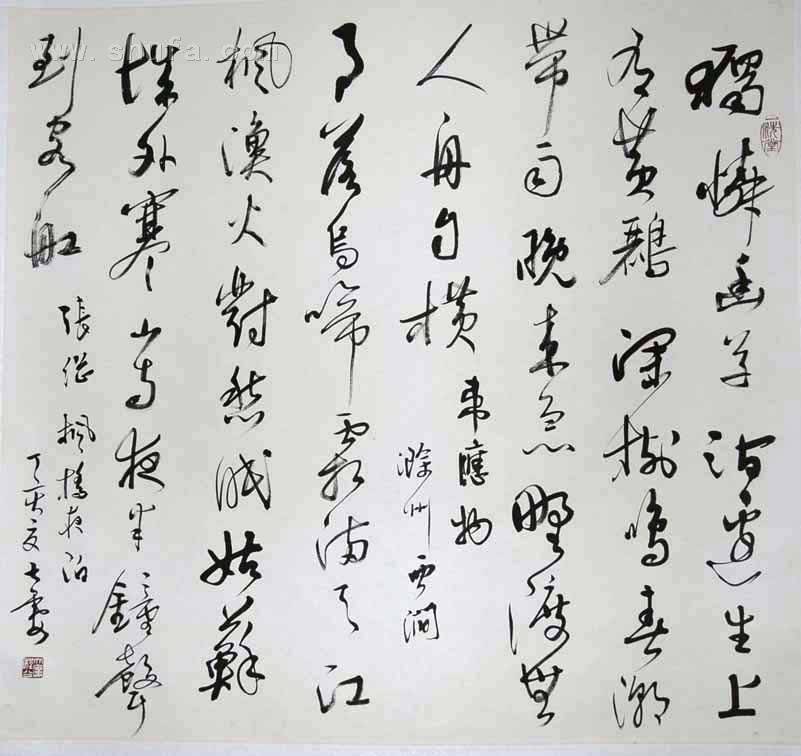 獨憐幽草澗邊生上
有黃鸝深樹鳴春潮
帶雨晚來急野渡無
人舟自橫
韋應物
滁州西澗
月落烏啼霜滿天江
楓漁火對愁眠姑蘇
城外寒山寺夜半鐘聲
到客船
張繼楓橋夜泊
丁亥夏
www.shufa.com